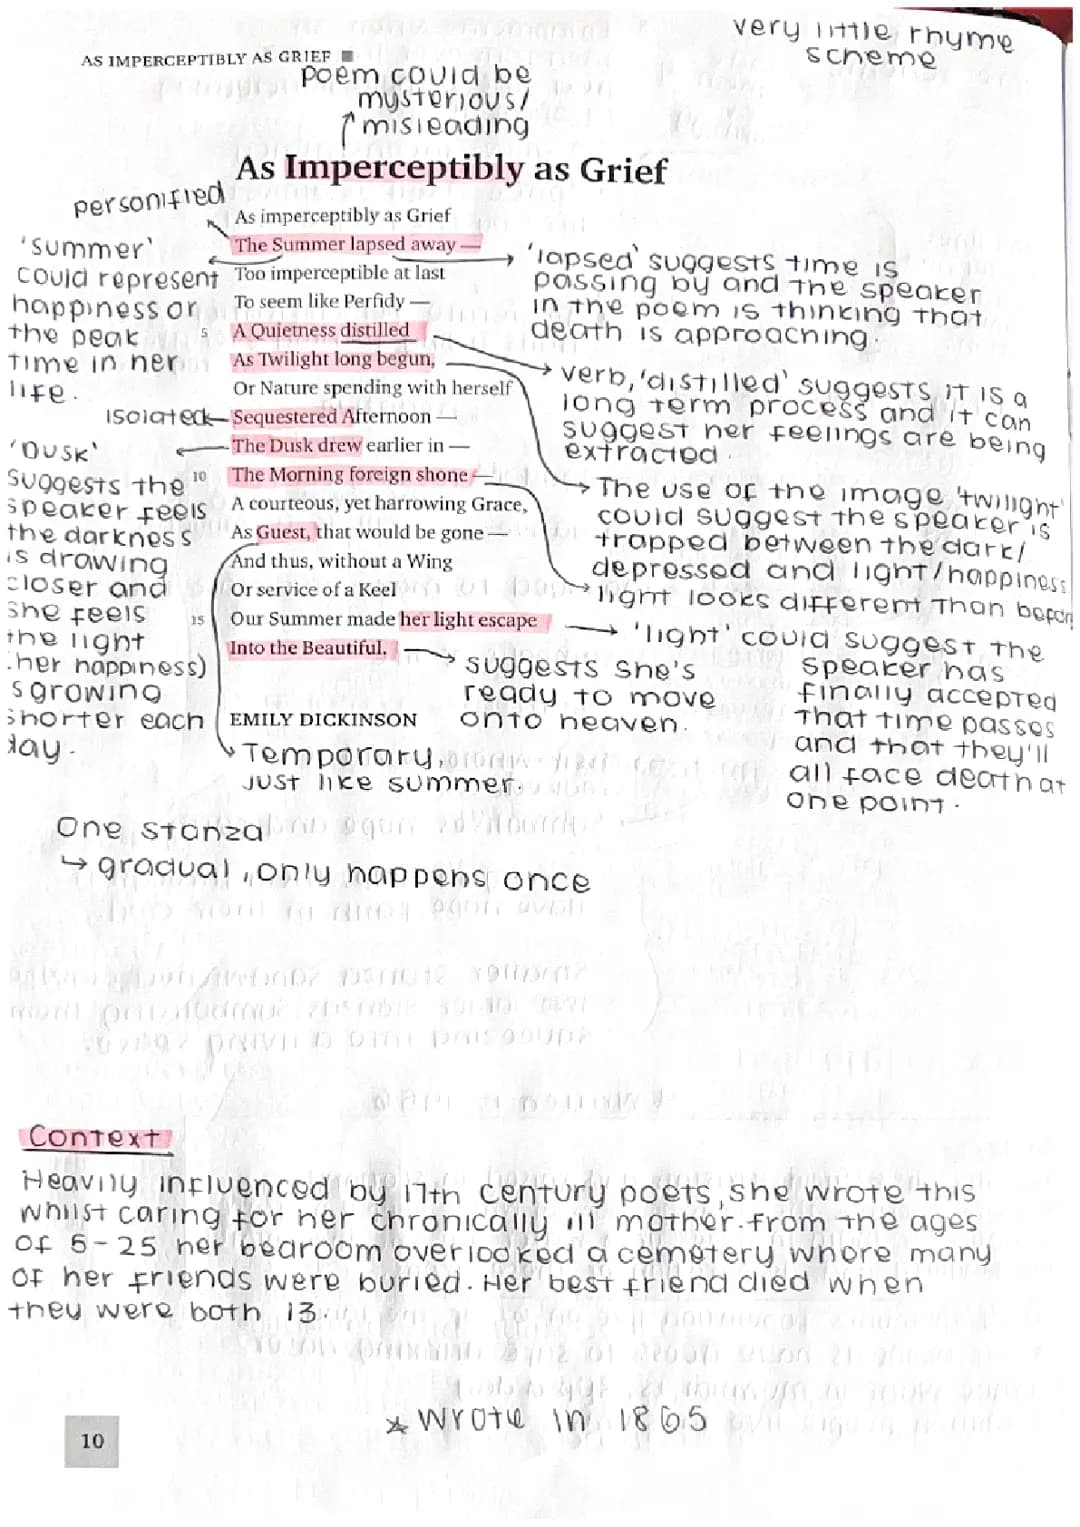 very little rhyme
scheme
AS IMPERCEPTIBLY AS GRIEF
poem could be
mysterious/
misleading
As Imperceptibly as Grief
personified
As imperceptibly as Grief
The Summer lapsed away —
Too imperceptible at last
To seem like Perfidy —
5 A Quietness distilled
As Twilight long begun,
Or Nature spending with herself
Sequestered Afternoon —
The Dusk drew earlier in —
10 The Morning foreign shone —
A courteous, yet harrowing Grace,
As Guest, that would be gone —
And thus, without a Wing
Or service of a Keel
15 Our Summer made her light escape
Into the Beautiful.
EMILY DICKINSON
'summer'
could represent
happiness or
the peak
time in her
life.
isolated
'Dusk'
suggests the
speaker feels
the darkness
is drawing
closer and
she feels
the light
her happiness)
s growing
shorter each
day.
'lapsed' suggests time is
passing by and the speaker
in the poem is thinking that
death is approaching.
verb, 'distilled' suggests it is a
long term process and it can
suggest her feelings are being
extracted.
The use of the image 'twilight'
could suggest the speaker is
trapped between the dark/
depressed and light/happiness
light looks different than before
'light' could suggest the
speaker has
finally accepted
that time passes
and that they'll
all face death at
one point.
suggests she's
ready to move
onto heaven.
Temporary,
just like summer.
One stanza
↳ gradual, only happens once
Context
Heavily influenced by 17th century poets, she wrote this
whilst caring for her chronically ill mother. from the ages
of - 25 her bedroom overlooked a cemetery where many
of her friends were buried. Her best friend died when
they were both 13.
* Wrote in 1865
10